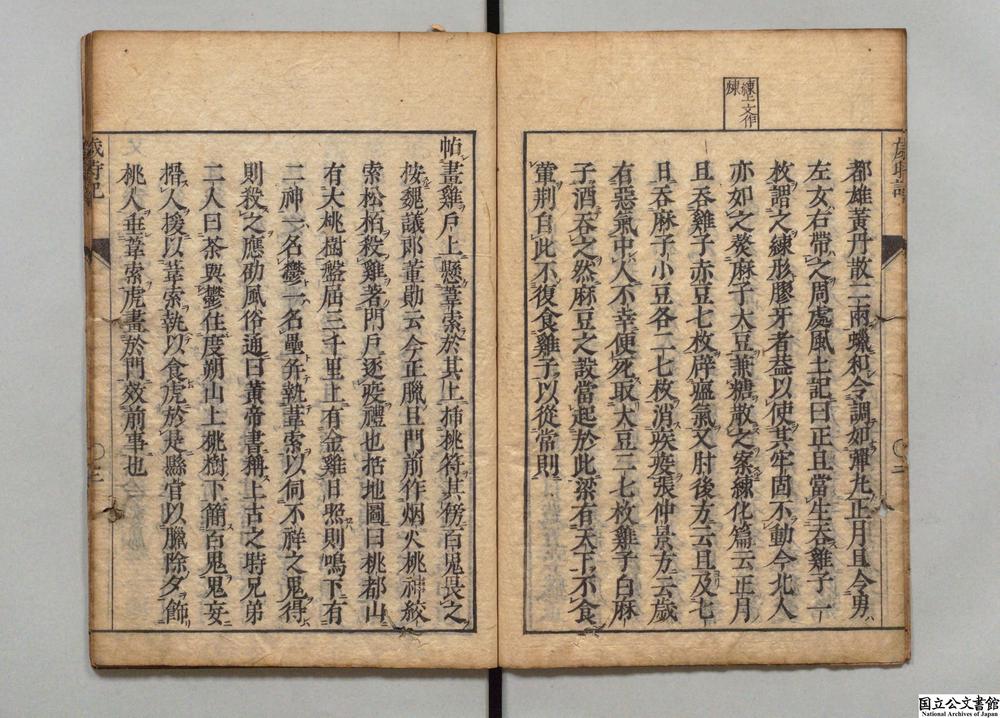 練上文作
煉
歲時記
都雄黃丹散二兩蠟和令調如彈丸正月旦令男
左女右帶之周處風土記曰正旦當生吞雞子一
枚謂之練形膠牙者蓋以使其牢固不動今北人
亦如之熬麻子大豆兼糖散之案練化篇云正月
旦吞雞子赤豆七枚辟瘟氣又肘後方云旦及七
日吞麻子小豆各二七枚消疾疫張仲景方云歲
有惡氣中人不幸便死取大豆二七枚雞子白麻
子酒吞之然麻豆之設當起於此梁有天下不食
葷荆自此不復食雞子以從常則
二
帖畫雞戶上懸葦索於其上插桃符其傍百鬼畏之
按魏議郎董勛云今正臘旦門前作烟火桃神絞
索松柏殺雞著門戶逐疫禮也括地圖曰桃都山
有大桃樹盤屈三千里上有金雞日照則鳴下有
二神一名鬱一名壘并執葦索以伺不祥之鬼得
則殺之應劭風俗通曰黃帝書稱上古之時兄弟
二人曰荼與鬱住度朔山上桃樹下簡百鬼鬼妄
搰人援以葦索執以食虎於是縣官以臘除夕飾
桃人垂葦索虎畫於門效前事也
歲時記
三
国立公文書館
National Archives of Japan